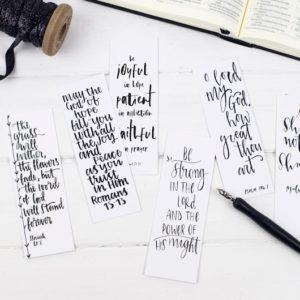 the grass
will
wither,
the flowers
fades, but
the word
of God
will stand
forever
may the
God of
hope
fill you
with all
the joy
and
peace
as you
trust
in Him
Romans
15:13
be
joyful
in hope
patient
in affliction
faithful
in prayer
Be
strong
IN THE
LORD
AND THE
POWER OF
HIS might
O Lord
my
God,
how
great
thou
art
Psalm
she
is
not